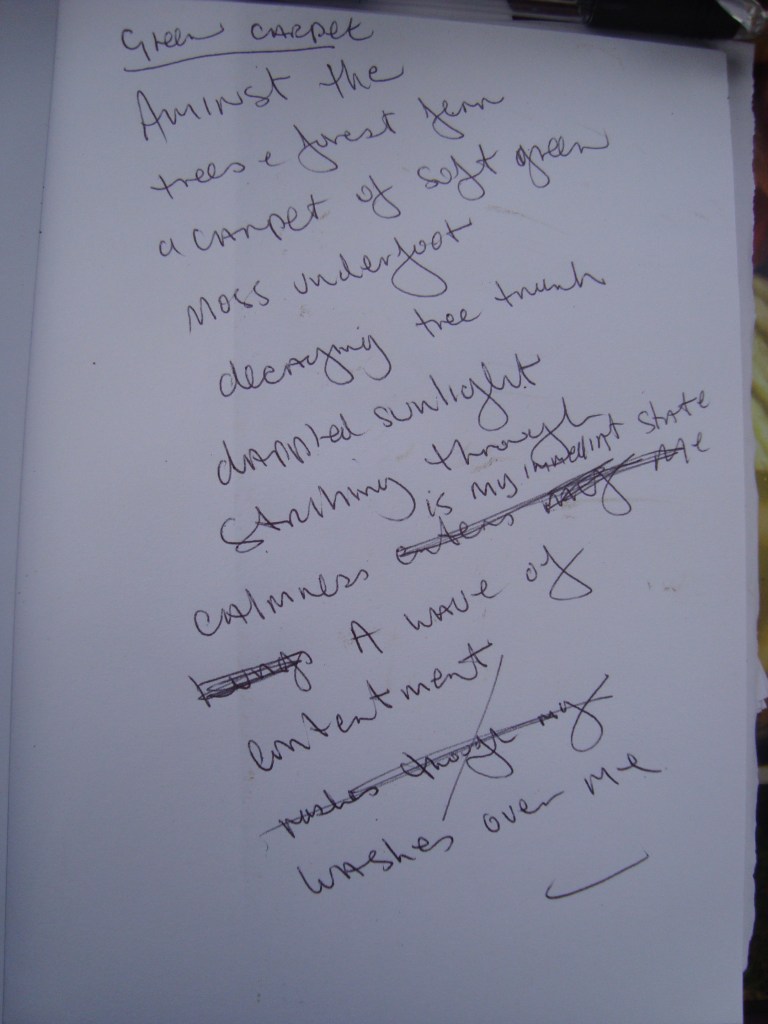 Green carpet
Aminst the
trees & forest fern
a carpet of soft green
moss underfoot
decaying tree trunk
dappled sunlight
through
is my state
calmness enters my me
lungs A wave of
contentment
rushes through my
washes over me